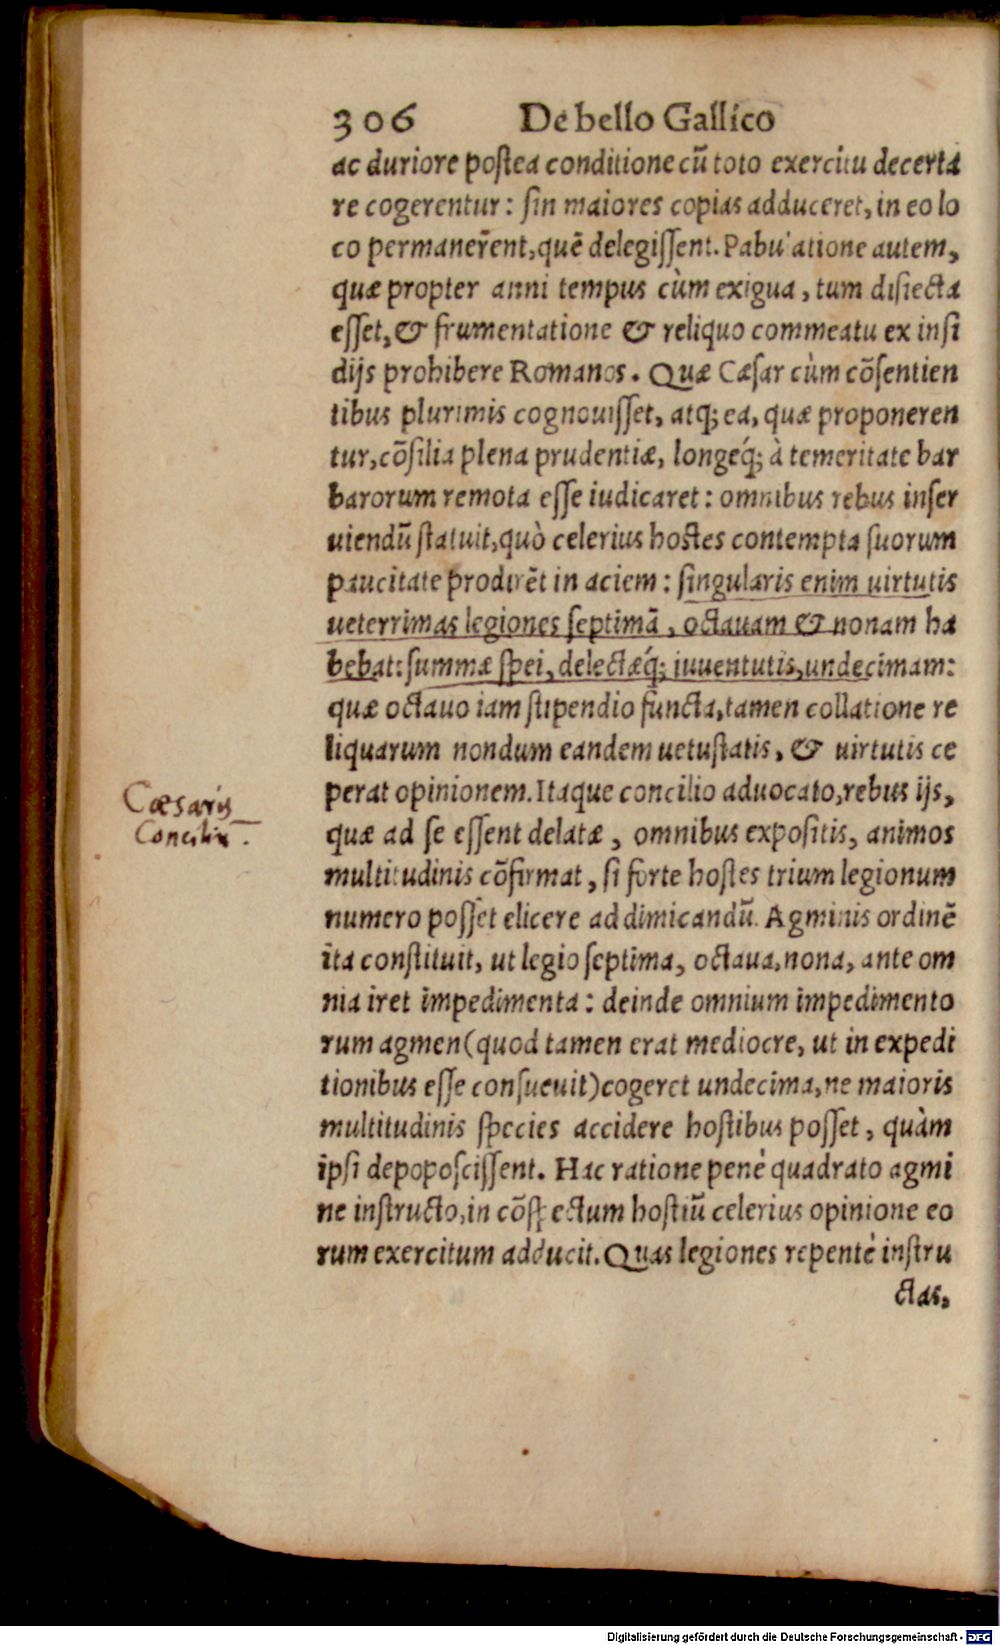 306 De bello Gallico
ac duriore postea conditione cū toto exercitu decerta
re cogerentur: sin maiores copias adduceret, in eo lo
co permanerent, quē delegissent. Pabulatione autem,
quæ propter anni tempus cùm exigua, tum disiecta
esset, & frumentatione & reliquo commeatu ex insi
dijs prohibere Romanos. Quæ Cæsar cùm cōsentien
tibus plurimis cognouisset, atq; ea, quæ proponeren
tur, cōsilia plena prudentiæ, longeq́; à temeritate bar
barorum remota esse iudicaret: omnibus rebus inser
uiendū statuit, quò celerius hostes contempta suorum
paucitate prodirēt in aciem: singularis enim uirtutis
ueterrimas legiones septimā, octauam & nonam ha
bebat: summæ spei, delectæq́; iuuentutis, undecimam:
quæ octauo iam stipendio functa, tamen collatione re
liquarum nondum eandem uetustatis, & uirtutis ce
perat opinionem. Itaque concilio aduocato, rebus ijs,
Cæsaris
Conciliū.
quæ ad se essent delatæ, omnibus expositis, animos
multitudinis cōfirmat, si forte hostes trium legionum
numero posset elicere ad dimicandū. Agminis ordinē
ita constituit, ut legio septima, octaua, nona, ante om
nia iret impedimenta: deinde omnium impedimento
rum agmen (quod tamen erat mediocre, ut in expedi
tionibus esse consueuit) cogeret undecima, ne maioris
multitudinis species accidere hostibus posset, quàm
ipsi depoposcissent. Hac ratione penè quadrato agmi
ne instructo, in cōspectum hostiū celerius opinione eo
rum exercitum adducit. Quas legiones repentè instru
ctas,
Digitalisierung gefördert durch die Deutsche Forschungsgemeinschaft - DFG